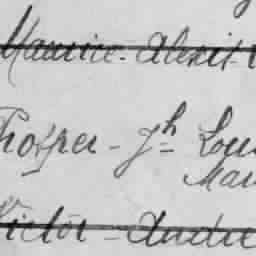 Maurice - Alexis -
Prosper - Jh Lou
Mau
Victor - André